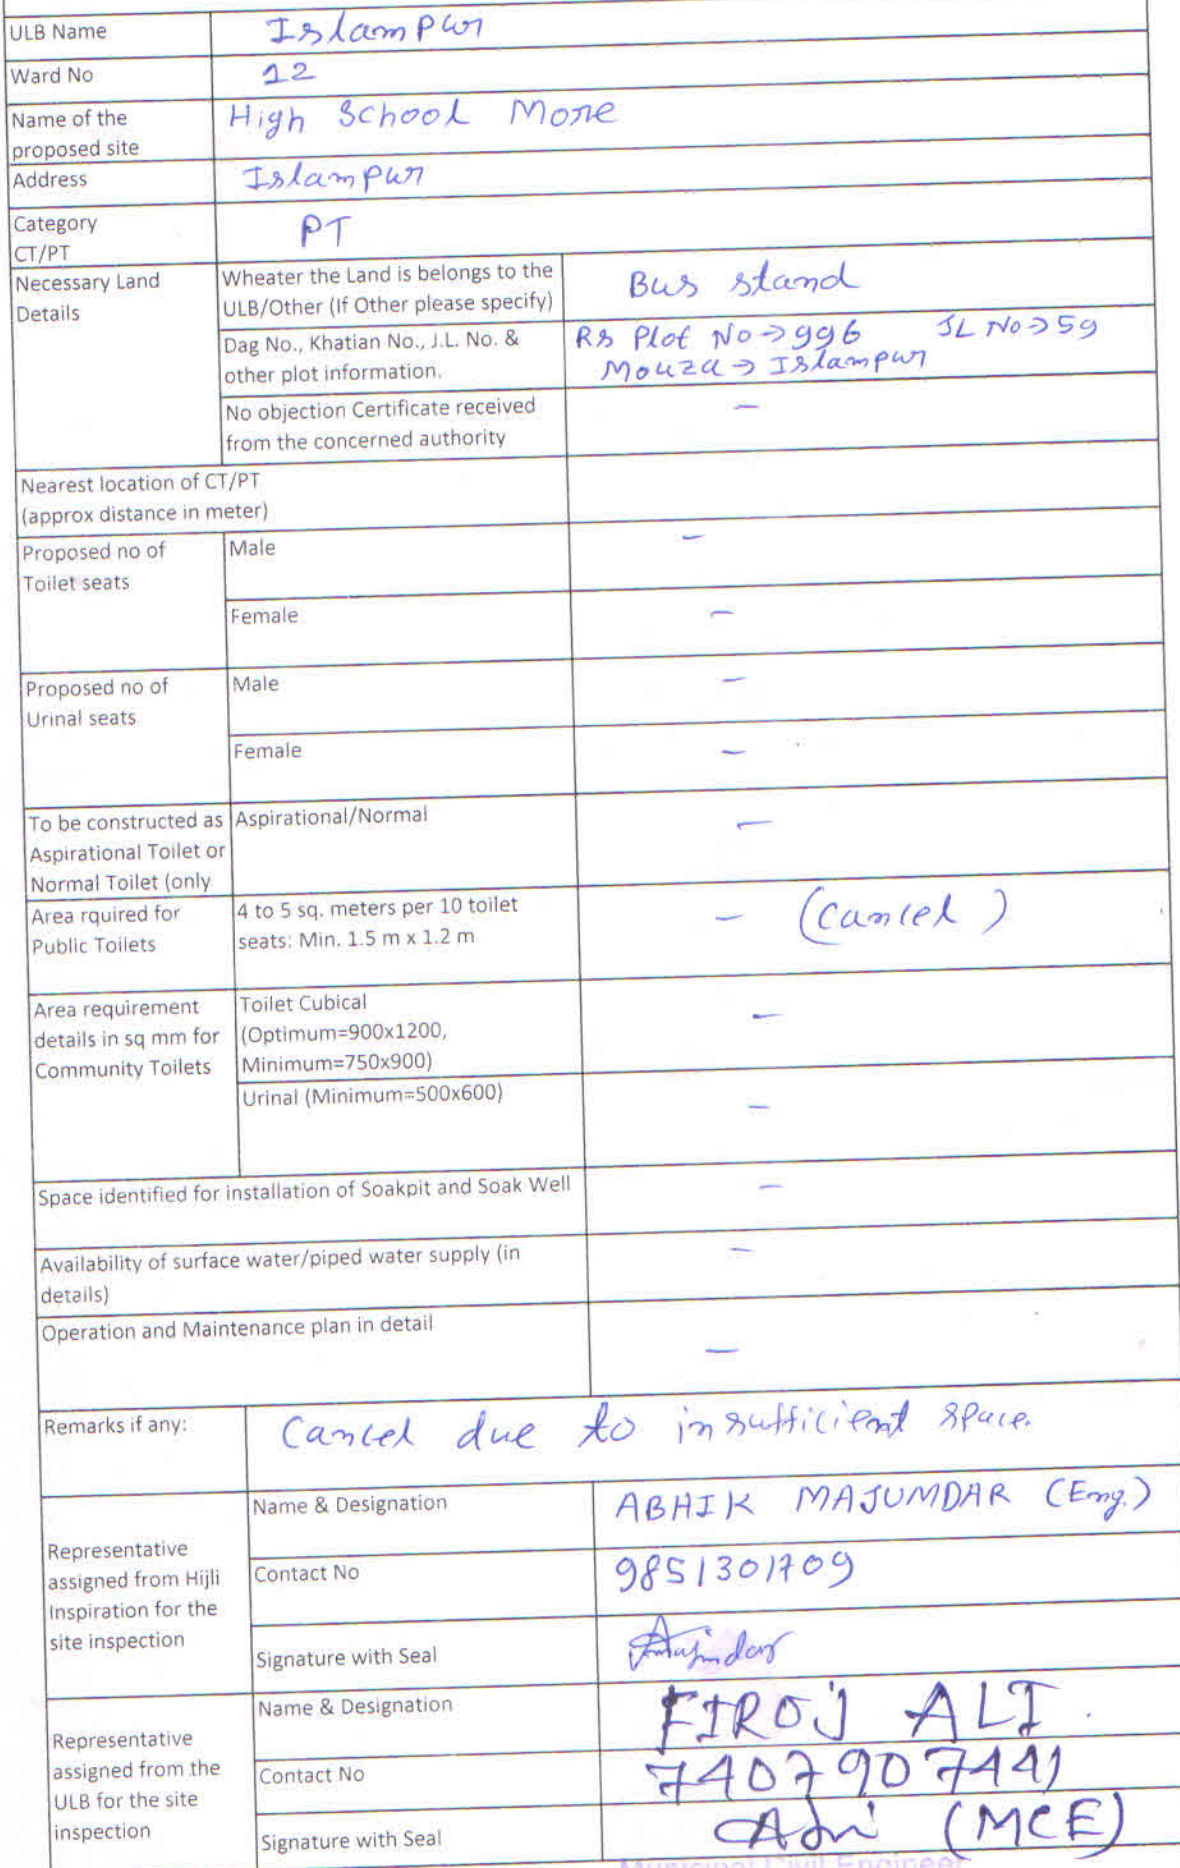 ULB Name Islampur
Ward No 12
Name of the
proposed site High School More
Address Islampur
Category
CT/PT PT
Necessary Land
Details
Wheater the Land is belongs to the
ULB/Other (If Other please specify) Bus stand
Dag No., Khatian No., J.L. No. &
other plot information.
RS Plot No→996 JL No→59
Mouza→ Islampur
No objection Certificate received
from the concerned authority –
Nearest location of CT/PT
(approx distance in meter)
Proposed no of
Toilet seats
Male –
Female –
Proposed no of
Urinal seats
Male –
Female –
To be constructed as
Aspirational Toilet or
Normal Toilet (only
Aspirational/Normal –
Area rquired for
Public Toilets
4 to 5 sq. meters per 10 toilet
seats: Min. 1.5 m x 1.2 m
– (Cancel)
Area requirement
details in sq mm for
Community Toilets
Toilet Cubical
(Optimum=900x1200,
Minimum=750x900) –
Urinal (Minimum=500x600) –
Space identified for installation of Soakpit and Soak Well –
Availability of surface water/piped water supply (in
details) –
Operation and Maintenance plan in detail –
Remarks if any: Cancel due to insufficient space.
Representative
assigned from Hijli
Inspiration for the
site inspection
Name & Designation ABHIK MAJUMDAR (Eng.)
Contact No 9851301709
Signature with Seal
Representative
assigned from the
ULB for the site
inspection
Name & Designation FIROJ ALI.
Contact No 7407907441
Signature with Seal (MCE)
Municipal Civil Engineer